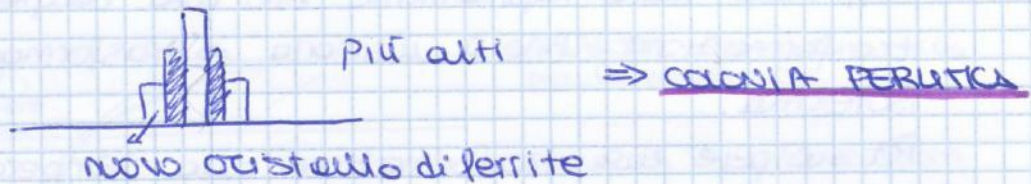 più alti
=> COLONIA PERLITICA
nuovo cristallo di ferrite